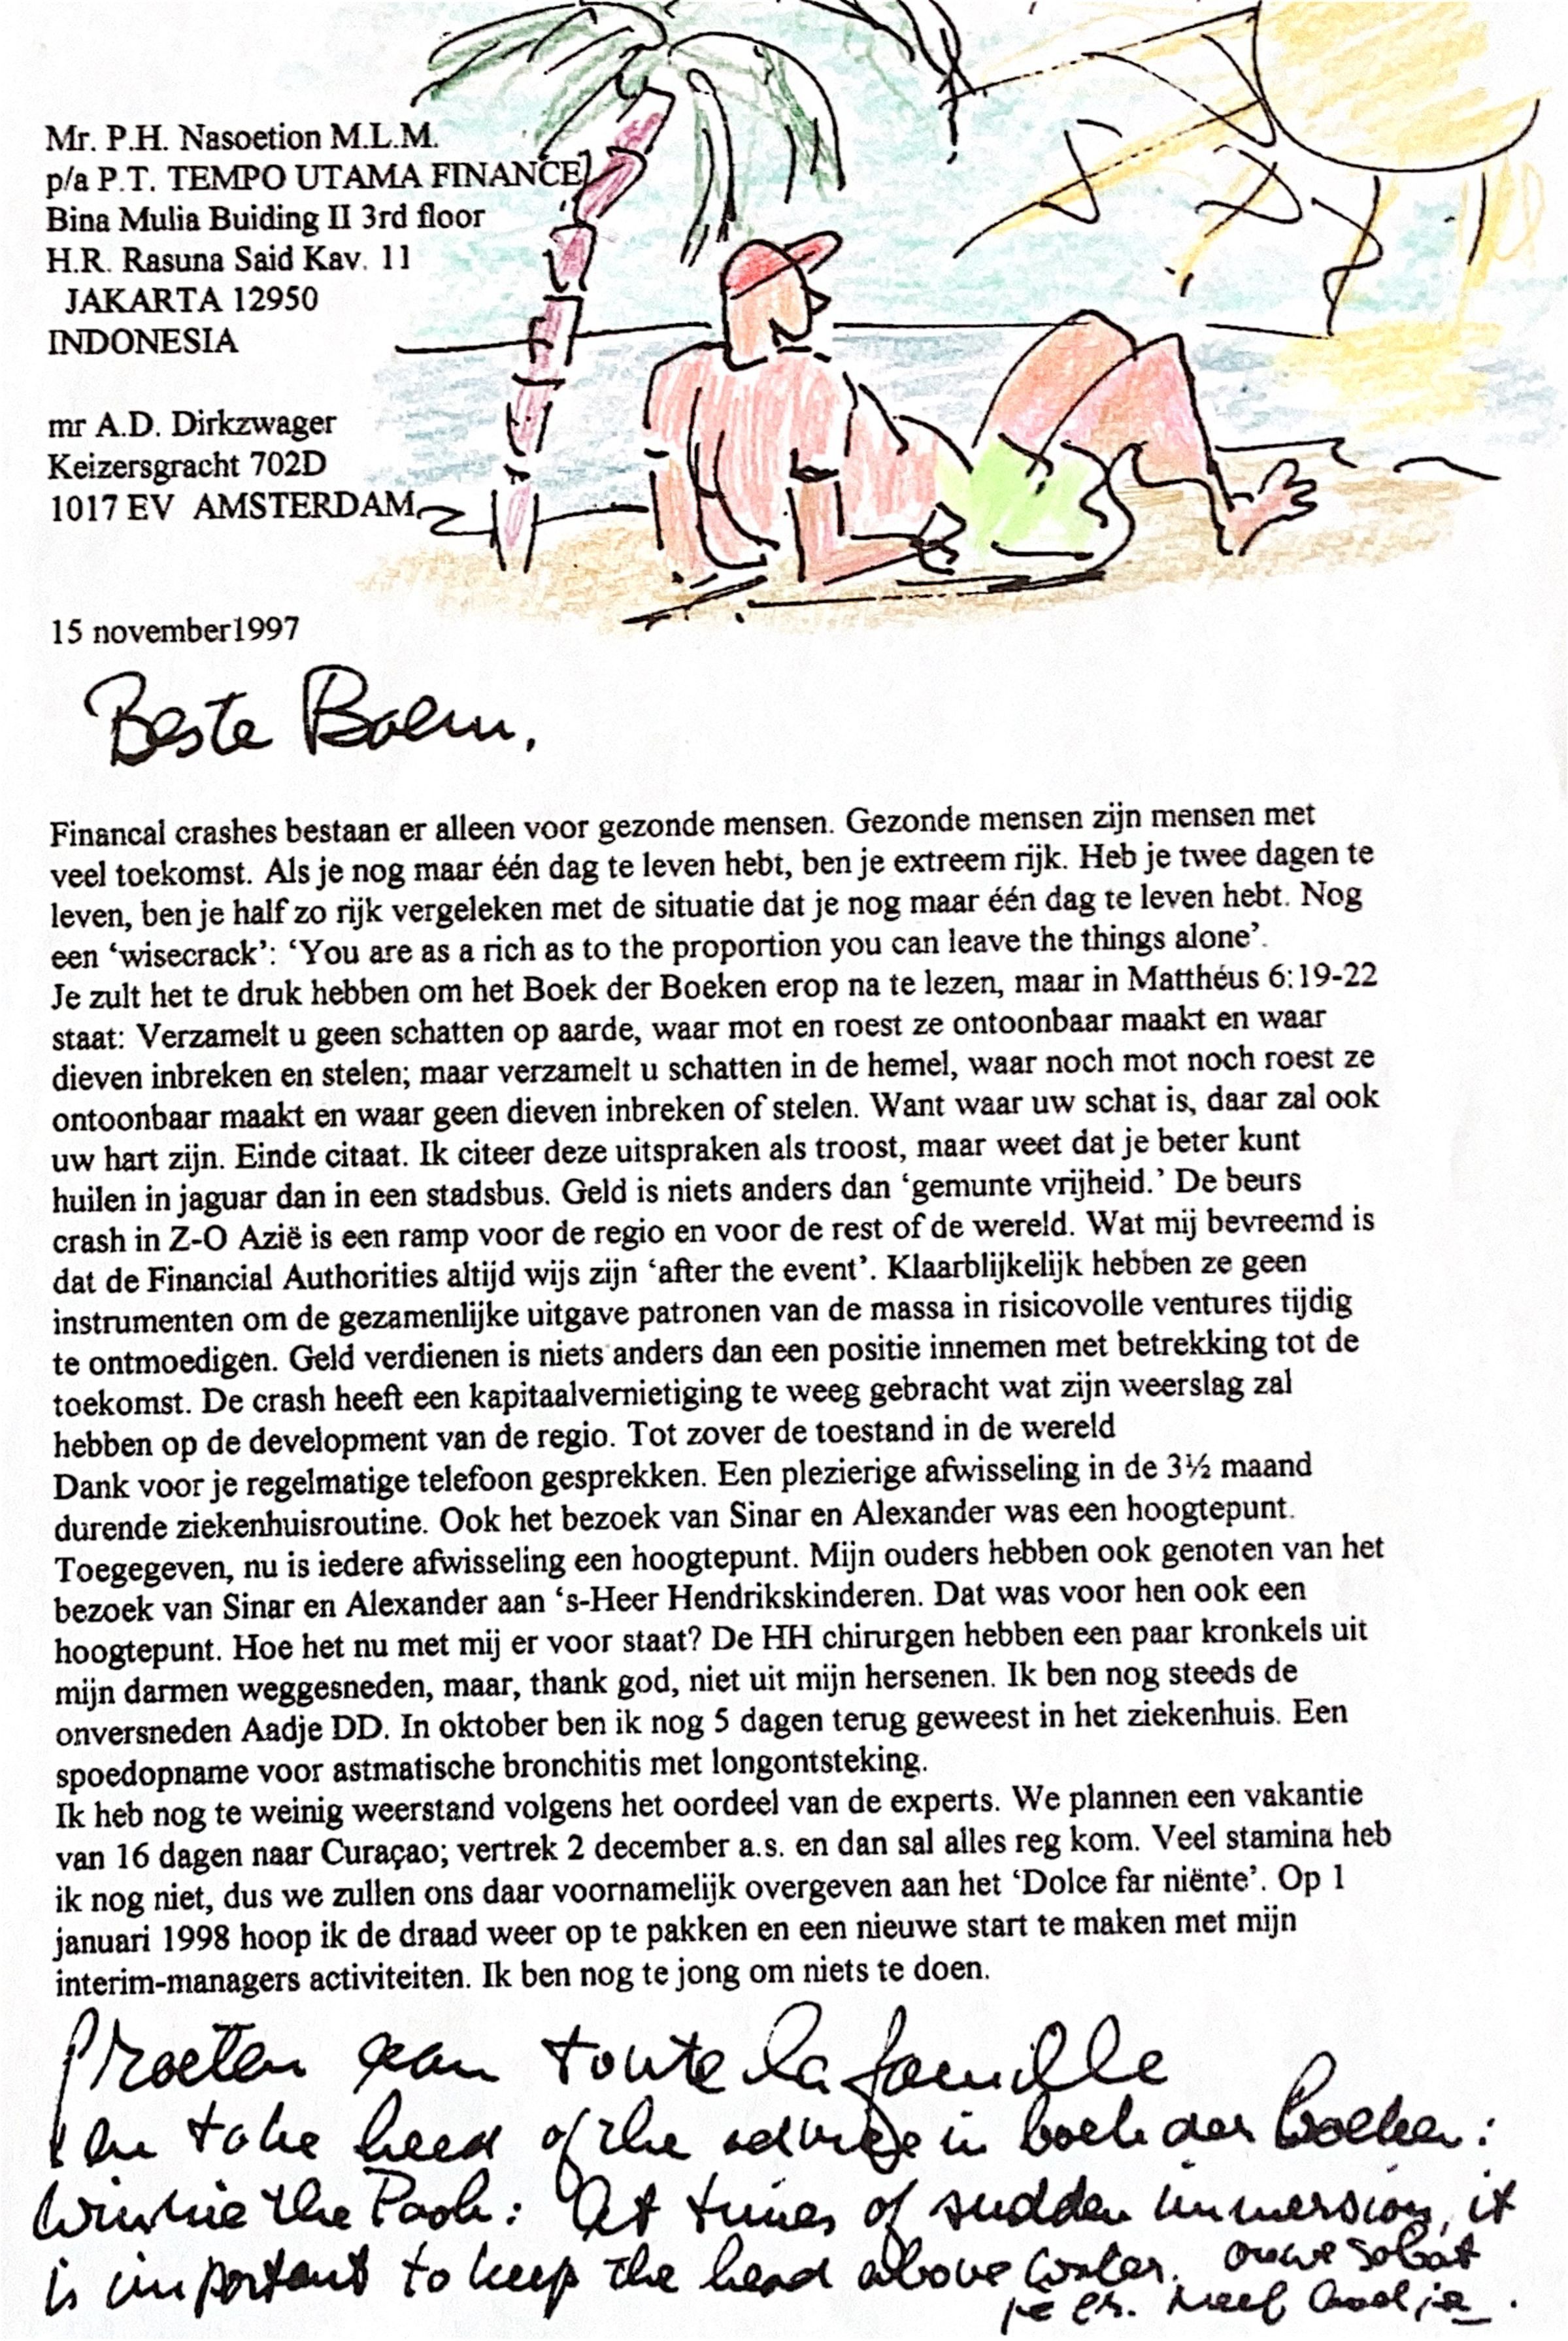 Mr. P.H. Nasoetion M.L.M.
p/a P.T. TEMPO UTAMA FINANCE
Bina Mulia Buiding II 3rd floor
H.R. Rasuna Said Kav. 11
JAKARTA 12950
INDONESIA
mr A.D. Dirkzwager
Keizersgracht 702D
1017 EV AMSTERDAM
15 november1997
Beste Boem,
Financal crashes bestaan er alleen voor gezonde mensen. Gezonde mensen zijn mensen met
veel toekomst. Als je nog maar één dag te leven hebt, ben je extreem rijk. Heb je twee dagen te
leven, ben je half zo rijk vergeleken met de situatie dat je nog maar één dag te leven hebt. Nog
een ‘wisecrack’: ‘You are as a rich as to the proportion you can leave the things alone’.
Je zult het te druk hebben om het Boek der Boeken erop na te lezen, maar in Matthéus 6:19-22
staat: Verzamelt u geen schatten op aarde, waar mot en roest ze ontoonbaar maakt en waar
dieven inbreken en stelen; maar verzamelt u schatten in de hemel, waar noch mot noch roest ze
ontoonbaar maakt en waar geen dieven inbreken of stelen. Want waar uw schat is, daar zal ook
uw hart zijn. Einde citaat. Ik citeer deze uitspraken als troost, maar weet dat je beter kunt
huilen in jaguar dan in een stadsbus. Geld is niets anders dan ‘gemunte vrijheid.’ De beurs
crash in Z-O Azië is een ramp voor de regio en voor de rest of de wereld. Wat mij bevreemd is
dat de Financial Authorities altijd wijs zijn ‘after the event’. Klaarblijkelijk hebben ze geen
instrumenten om de gezamenlijke uitgave patronen van de massa in risicovolle ventures tijdig
te ontmoedigen. Geld verdienen is niets anders dan een positie innemen met betrekking tot de
toekomst. De crash heeft een kapitaalvernietiging te weeg gebracht wat zijn weerslag zal
hebben op de development van de regio. Tot zover de toestand in de wereld
Dank voor je regelmatige telefoon gesprekken. Een plezierige afwisseling in de 3½ maand
durende ziekenhuisroutine. Ook het bezoek van Sinar en Alexander was een hoogtepunt.
Toegegeven, nu is iedere afwisseling een hoogtepunt. Mijn ouders hebben ook genoten van het
bezoek van Sinar en Alexander aan ‘s-Heer Hendrikskinderen. Dat was voor hen ook een
hoogtepunt. Hoe het nu met mij er voor staat? De HH chirurgen hebben een paar kronkels uit
mijn darmen weggesneden, maar, thank god, niet uit mijn hersenen. Ik ben nog steeds de
onversneden Aadje DD. In oktober ben ik nog 5 dagen terug geweest in het ziekenhuis. Een
spoedopname voor astmatische bronchitis met longontsteking.
Ik heb nog te weinig weerstand volgens het oordeel van de experts. We plannen een vakantie
van 16 dagen naar Curaçao; vertrek 2 december a.s. en dan sal alles reg kom. Veel stamina heb
ik nog niet, dus we zullen ons daar voornamelijk overgeven aan het ‘Dolce far niënte’. Op 1
januari 1998 hoop ik de draad weer op te pakken en een nieuwe start te maken met mijn
interim-managers activiteiten. Ik ben nog te jong om niets te doen.
Groeten aan toute la famille
En take heed of the advice in boek der boeken:
Winnie the Pooh: At times of sudden immersion, it
is important to keep the head above water. ouwe sobat
Neef Aadje.